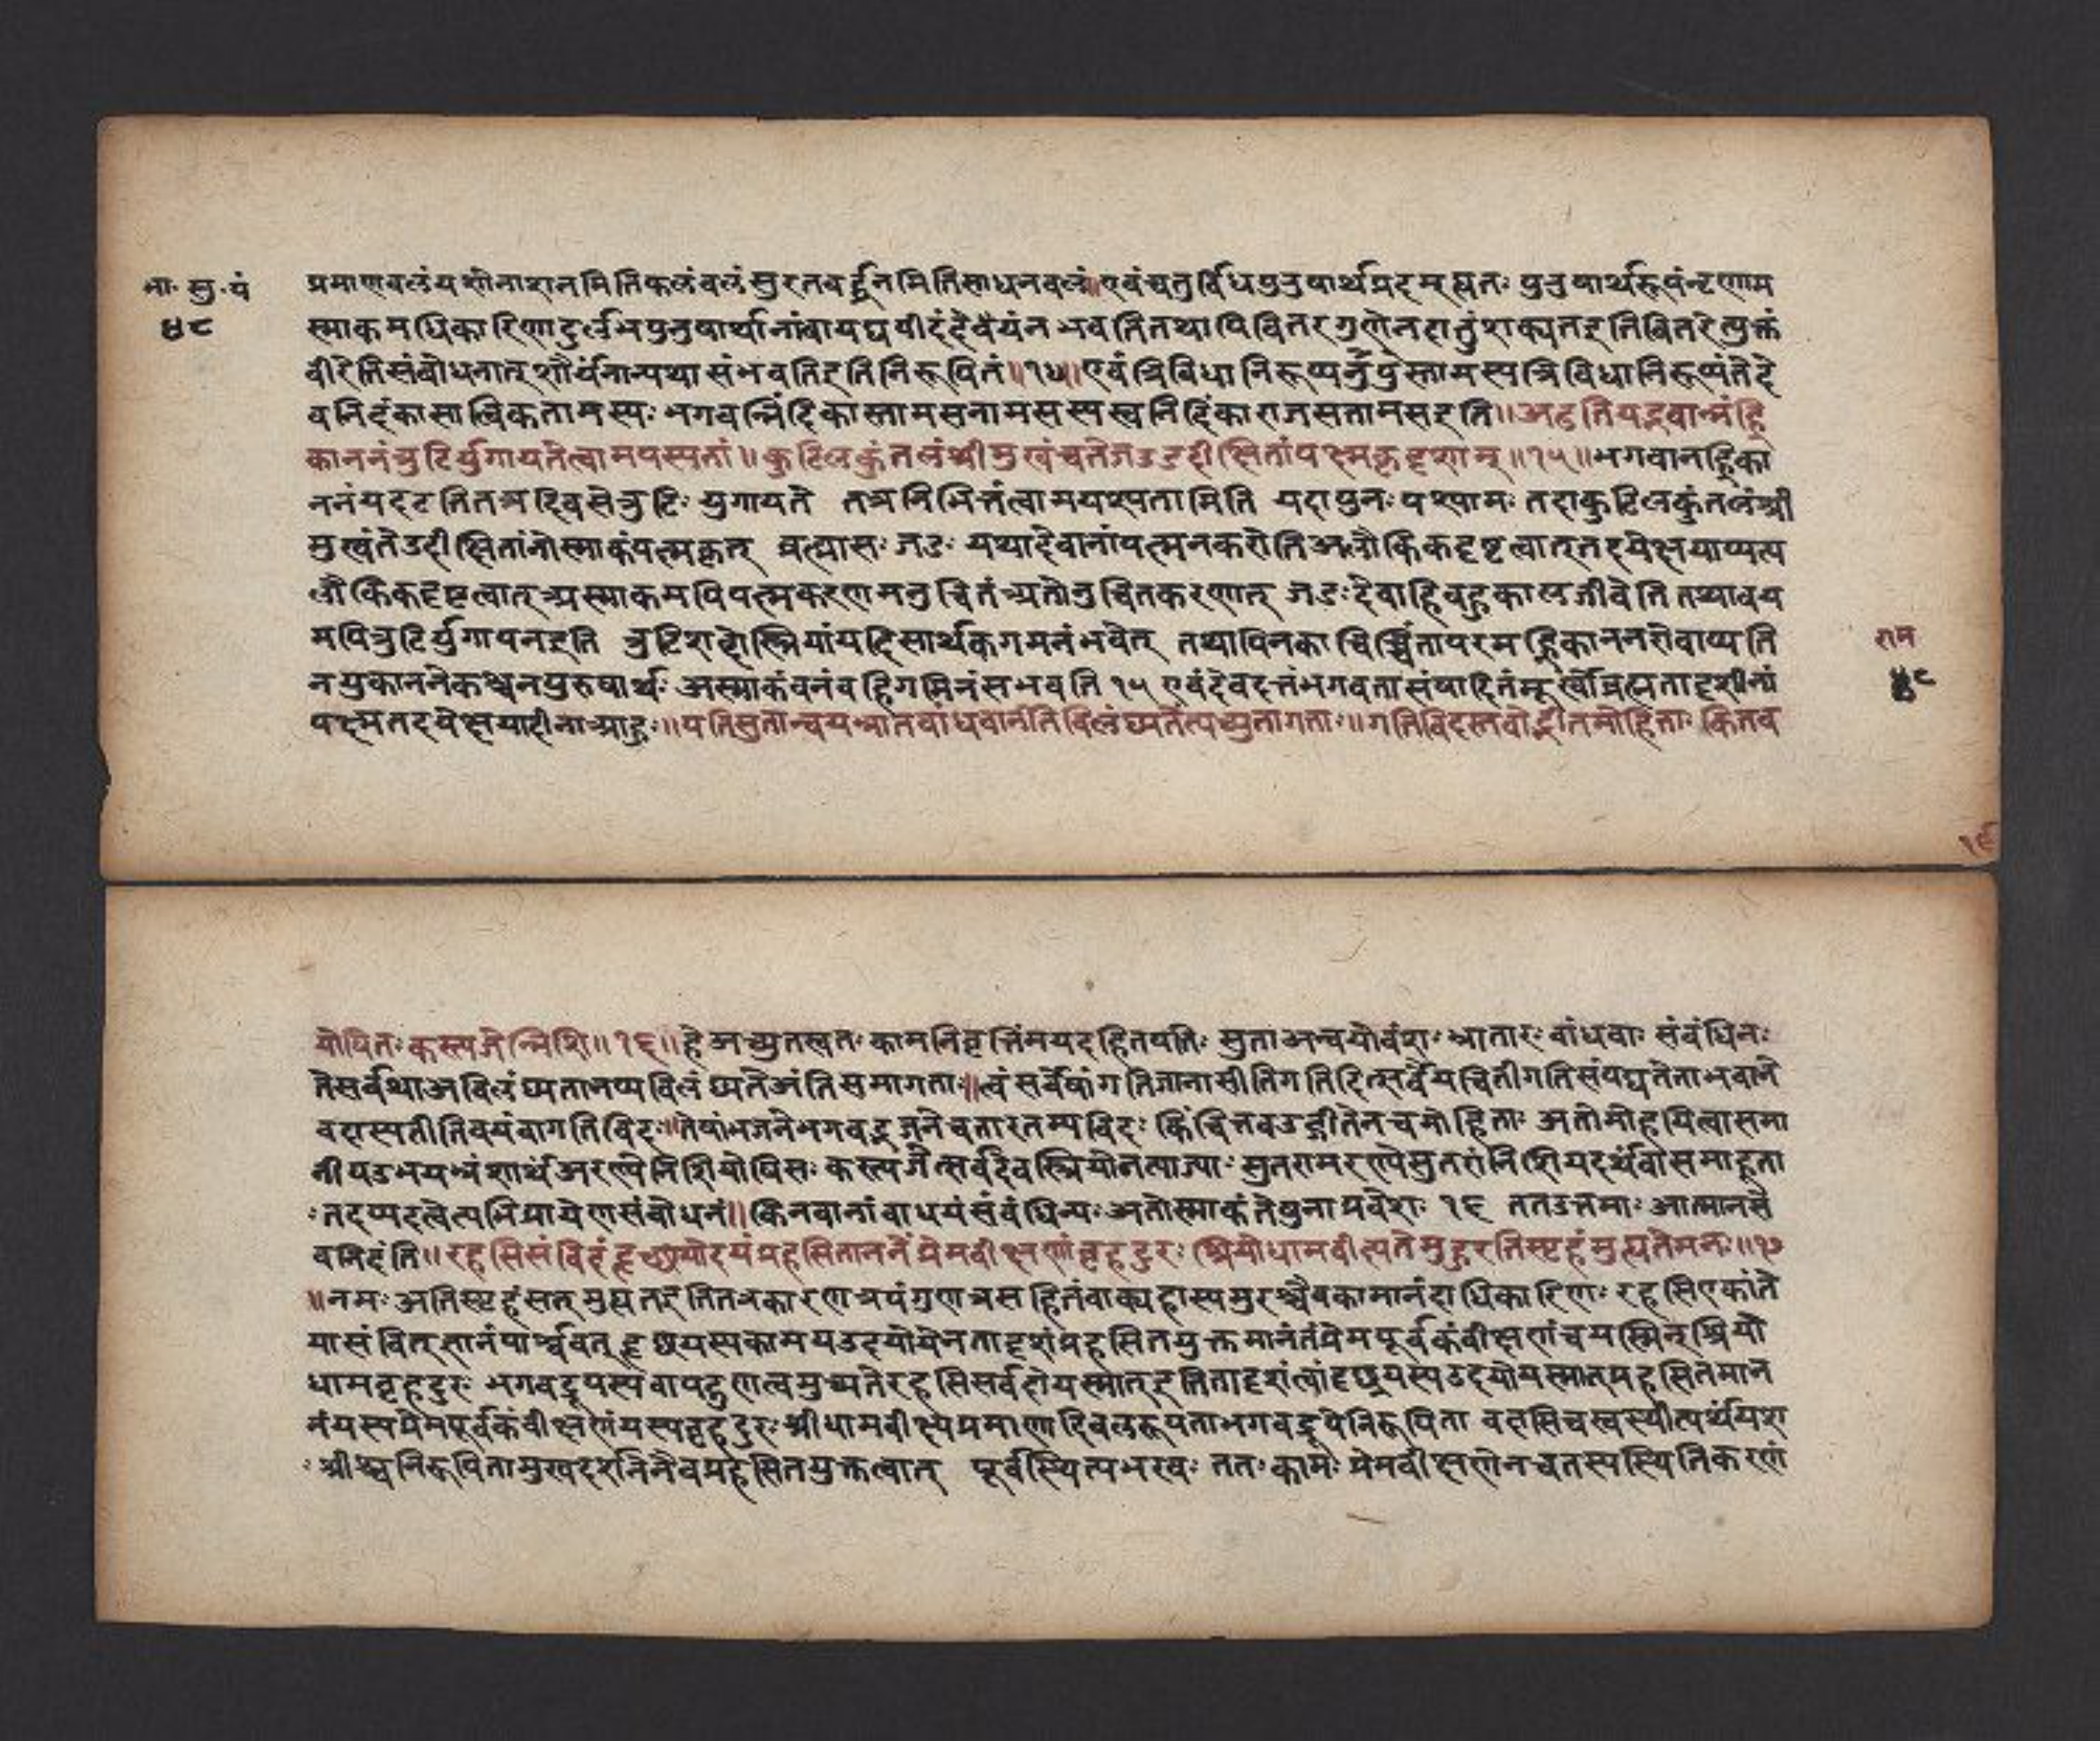 भा. सु. पं
४८
प्रमाणबलं यशोनाशनमिति फलं बलं सुरतवर्द्धनमिति साधनबलं॥ एवं चतुर्विधपुरुषार्थप्रदमप्यतः पुरुषार्थरूपं नृणाम
स्माकमधिकारिणा दुर्लभपुरुषार्थानां वा यद्यपीदं देवेयं न भवति तथापि वितर गुणेन दातुं शक्यत इति वितरेत्युक्तं
वीरेति संबोधनात् शौर्यं नान्यथा संभवति इति निरूपितं॥१४॥ एवं त्रिविधा निरूप्य पुनस्तामस्य त्रिविधा निरूप्यंते दे
वनिंदका सात्विकतामस्यः भगवन्निंदिका स्तामसतामसस्य स्वनिंदिका राजसतामस इति॥ अटति यद्भवान्नंह्नि
काननं त्रुटिर्युगायते त्वामपस्यतां॥ कुटिलकुंतलं श्रीमुखं च ते जड उदीक्षितां पक्ष्मकृदृशाम्॥१५॥ भगवानह्नि का
ननं यदटति तत्र दिवसे त्रुटिः युगायते तत्र निमित्तं त्वामपश्यतामिति यदा पुनः पश्यामः तदा कुटिलकुंतलं श्री
मुखं ते उदीक्षितां नोस्माकं पक्ष्मकृत् जडः यथा देवानां पक्ष्म न करोति अलौकिकदृष्टत्वात् तदपेक्षयाप्यत्य
लौकिकदृष्टत्वात् अस्माकमपि पक्ष्मकरणमनुचितं अतोनुचितकरणात् जडः देवा हि बहुकालजीवेति तथा वय
मपि त्रुटिर्युगायन इति त्रुटिशब्दो स्त्रियां यदि सार्थकगमनं भवेत् तथापि न काचिच्चिंता परमह्नि काननशेवाप्यति
न प्रकाननेकश्चन पुरुषार्थः अस्माकं वनं वहिगमिनं संभवति १५ एवं देवदत्तं भगवता संपादितं मूर्खो ब्रह्मतादृशीनां
पक्ष्म तदपेक्षया हीना आहुः॥ पतिसुतान्वयभ्रातृबांधवानतिविलंघ्य तेत्यच्युतागताः॥ गतिविदस्तवोद्गीतमोहिताः कितव
राम
४८
१९
योषितः कस्त्यजेन्निशि॥१६॥ हे अच्युत स्वतः कामनिवृत्तिं मयद हितपतिः सुता अन्वयो वंशः भ्रातारः बांधवाः संबंधिनः
ते सर्वथा अविलंघ्यतानप्यविलंघ्य ते अंति समागताः॥ त्वं सर्वेषां गतिं जानासीति गतिवित्सर्वे
वदास्यतीति वयं वा गतिविदः॥ तेषां भजने भगवद्भजने च तारतम्यविदः किंचित्तव उद्गीतेन च मोहिताः अतो मोहयित्वा समा
नीय उभयभ्रंशार्थं अरण्ये निशि योषितः कस्त्यजेत्सर्वदैव स्त्रियो न त्याज्याः सुतरामरण्ये सुतरां निशि यदर्थं वा समाहूता
ः तदप्यदत्वेत्यभिप्रायेण संबोधनं॥ कितवानां वाधयं संबंधिन्यः अतोस्माकं ते पुना प्रवेशः १६ तत उत्तमाः आत्मानमे
व निंदंति॥ रहसि संविदं हृच्छयोदयं प्रहसिताननं प्रेमवीक्षणं बृहदुरः श्रियो धाम वीक्ष्यते मुहुरतिस्पृहं मुह्यते मनः॥१७
॥ नमः अतिस्पृहं सत् मुह्यत इति तत्र कारणत्रयं गुणत्रसहितं वाक्यहास्यमुरश्चैव कामानंदाधिकारिणः रहसि एकांते
या संवित् ज्ञानं पार्श्ववत् हृच्छयस्य कामय उदयो येन तादृशं प्रहसितयुक्तमानंतं प्रेमपूर्वकं वीक्षणं च यस्मिन् श्रियो
धाम बृहदुरः भगवद्रूपस्य वा पदुणत्वमुच्यते रहसि सर्वदो यस्मात् इति तादृशं त्वां हृच्छयस्य उदयो यस्मात् प्रहसितमान
नं यस्य प्रेमपूर्वकं वीक्षणं यस्य बृहदुरः श्रीधाम वीक्ष्य प्रमाणादिबलरूपता भगवद्रूपे निरूपिता वक्षसि च स्वस्थीत्यर्थं यश
ः श्रीश्च निरूपिता मुखदर्शनेनैव प्रहसितयुक्तत्वात् पूर्वस्थित्यभरवः ततः कामः प्रेमवीक्षणेन च तस्य स्थितिकरणं